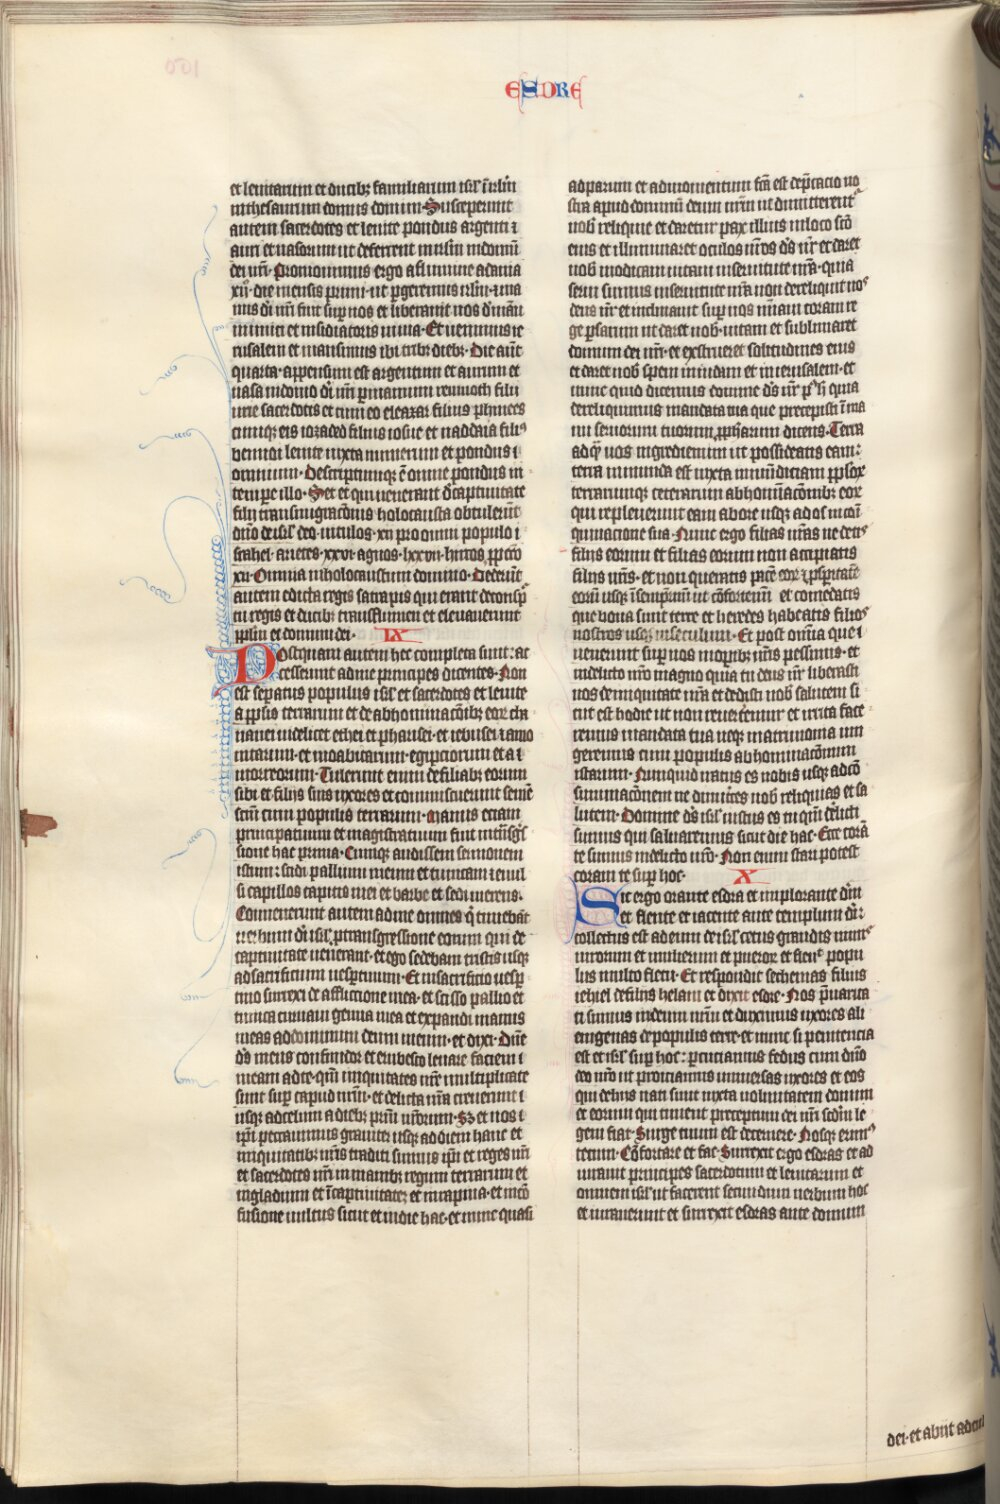 ESDRE
et leuitarum et ducibꝫ familiarum isrl̄ ī irlm̄
in thesaurum domus domini. Susceperunt
autem sacerdotes et leuite pondus argenti ⁊
auri et uasorum ut deferrent in irlm̄ in domū
dei nr̄i. Promouimus ergo a flumine adaua
xij. die mensis primi. ut ꝑgeremus irlm̄. ⁊ ma
nus di nr̄i fuit suꝑ nos et liberauit nos d̓ manu
inimici et insidiatoris in uia. Et uenimus ie
rusalem et mansimus ibi tribꝫ diebꝫ. Die aūt
quarta. appensum est argentum et aurum et
uasa in domo di nr̄i ꝑ manum remmoth filii
urie sacerdotis et cum eo eleazar filius phinees
cumqꝫ eis iozaded filius iosue et naddaia filiꝰ
bennoi leuite iuxta numerum et pondus
omnium. Descriptumqꝫ ē omne pondus in
tempore illo. Set et qui uenerant d̓ captiuitate
filij transmigracōnis holocausta obtulerūt
dn̄o deo isrl̄ deo. uitulos. xij pro omni populo i
srahel. arietes. xxvi. agnos. lxxvij. hircos ꝓ pccō
xij. Omnia in holocaustum domino. Dederūt
autem edicta regis satrapis qui erant de consp̄
tu regis et ducibꝫ trans flumen et eleuauerunt
ppl̄m et domum dei. IX
Postquam autem hec completa sunt: ac
cesserunt ad me principes dicentes. Non
est seꝑatus populus isrl̄ et sacerdotes et leuite
a ppl̄is terrarum et de abhominacōibꝫ eoꝝ cha
nanei uidelicet ethei et pharisei. et iebusei ⁊ amo
nitarum. et moabitarum. egipciorum et a
morreorum. Tulerunt enim de filiabꝫ eorum
sibi et filijs suis uxores et commiscuerunt semē
scm̄ cum populis terrarum. Manus eciam
principatuum et magistratuum fuit in tn̄sgs̄
sione hac prima. Cumqꝫ audissem sermonem
istum: scidi pallium meum et tunicam ⁊ euul
si capillos capitis mei et barbe et sedi merens.
Conuenerunt autem ad me omnes q̇ timebāt
uerbum di isrl̄. ꝓ transgressione eorum qui de
captiuitate uenerant. et ego sedebam tristis usqꝫ
ad sacrificium uesꝑtinum. Et in sacrificio uesꝑ
tino surrexi de afflictione mea. et scisso pallio et
tunica curuaui genua mea et expandi manus
meas ad dominum deum meum. et dixi. Dn̄e
ds̄ meus confundor et erubesco leuare faciem
meam ad te. qm̄ iniquitates nr̄e multiplicate
sunt suꝑ capud nr̄m. et delicta nr̄a creuerunt
usqꝫ ad celum a diebꝫ prm̄ nr̄orum. Sꝫ et nos
ip̄i peccauimus grauiter usqꝫ ad diem hanc et
in iniquitatibꝫ nr̄is traditi sumus ip̄i et reges nr̄i
et sacerdotes nr̄i in manibꝫ regum terrarum et
in gladium et ī captiuitatē et in rapina. et in cō
fusione uultus sicut et in die hac. et nunc quasi
ad parum et ad momentum fc̄a est dep̄cacio no
stra apud dominum deum nr̄m ut dimitterent̉
nob̄ reliquie et daretur pax illius in loco scō
eius et illuminaret oculos nr̄os ds̄ nr̄ et daret
nob̄ modicam uitam in seruitute nr̄a. quia
serui sumus in seruitute nr̄a non dereliquit nos
deus nr̄ et inclinauit suꝑ nos mīam coram re
ge ꝑsarum ut daret nob̄. uitam et sublimaret
domum dei nr̄i. et exstrueret solitudines eius
et daret nob̄ spem in iudam et in ierusalem. et
nunc quid dicemus domine ds̄ nr̄ pꝰ h̄ quia
dereliquimus mandata tua que precepisti ī ma
nu seruorum tuorum ꝓph̄arum dicens. Terra
ad q̄ uos ingredimini ut possideatis eam:
terra inmunda est iuxta inmūdiciam pploꝝ
terrarumqꝫ ceterarum abhominacōnibꝫ eoꝝ
qui repleuerunt eam ab ore usqꝫ ad os in coī
quinacione sua. Nunc ergo filias nr̄as ne detis
filijs eorum et filias eorum non accipiatis
filijs ur̄is. et non queratis pacē eoꝝ ⁊ ꝓsꝑitatē
eoꝝ usqꝫ ī sempit̄num ut cōfortemini et comedatis
que bona sunt terre et heredes habeatis filios
nostros usqꝫ in seculum. Et post omnia que
uenerunt suꝑ nos in operibꝫ nr̄is pessimis. et
in delicto nr̄o magno quia tu deus nr̄ liberasti
nos de iniquitate nr̄a et dedisti nob̄ salutem si
cut est hodie ut non reuertemur et irrita face
remus mandata tua neqꝫ matrimonia iun
geremus cum populis abhominacōnum
istarum. Nunquid iratus es nobis usqꝫ ad cō
summacōnem ne dimittes nob̄ reliquias et sa
lutem. Domine ds̄ isrl̄ iustus es tu qm̄ dēlicti
sumus qui saluaremur sicut die hac. Ecce corā
te sumus in delicto nr̄o. Non enim stari potest
coram te suꝑ hoc. X
Sic ergo orante esdra et implorante dm̄
et flente et iacente ante templum di:
collectus est ad eum de isrl̄ cetus grandis nimis
uirorum et mulierum et pueroꝝ et fleuit popu
lus multo fletu. Et respondit sechemas filius
iehiel de filijs helam et dixit esdre. Nos p̄uarica
ti sumus in deum nr̄m et duximus uxores ali
enigenas de populis terre. et nunc si penitencia
est et isrl̄ suꝑ hoc: ꝑcuciamus fedus cum dn̄o
deo nr̄o ut proiciamus uniuersas uxores et eos
qui de his nati sunt iuxta uoluntatem domini
et eorum qui timent preceptum dei nr̄i scdm̄ le
gem fiat. Surge tuum est decernere. Nosqꝫ erimꝰ
tecum. Cōfortare et fac. Surrexit ergo esdras et ad
iurauit principes sacerdotum et leuitarum et
omnem isrl̄ ut facerent secundum uerbum hoc
et iurauerunt et surrexit esdras ante domum
dei. et abijt ad cubi